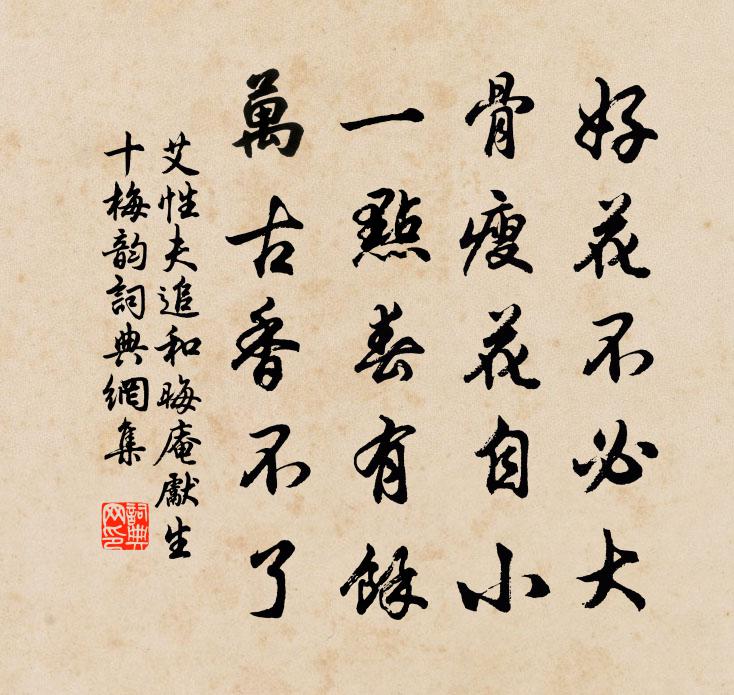 好花不必大
骨瘦花自小
一點春有餘
萬古香不了
艾性夫追和晦庵獻生
十梅韵詞典網集
詞典网印